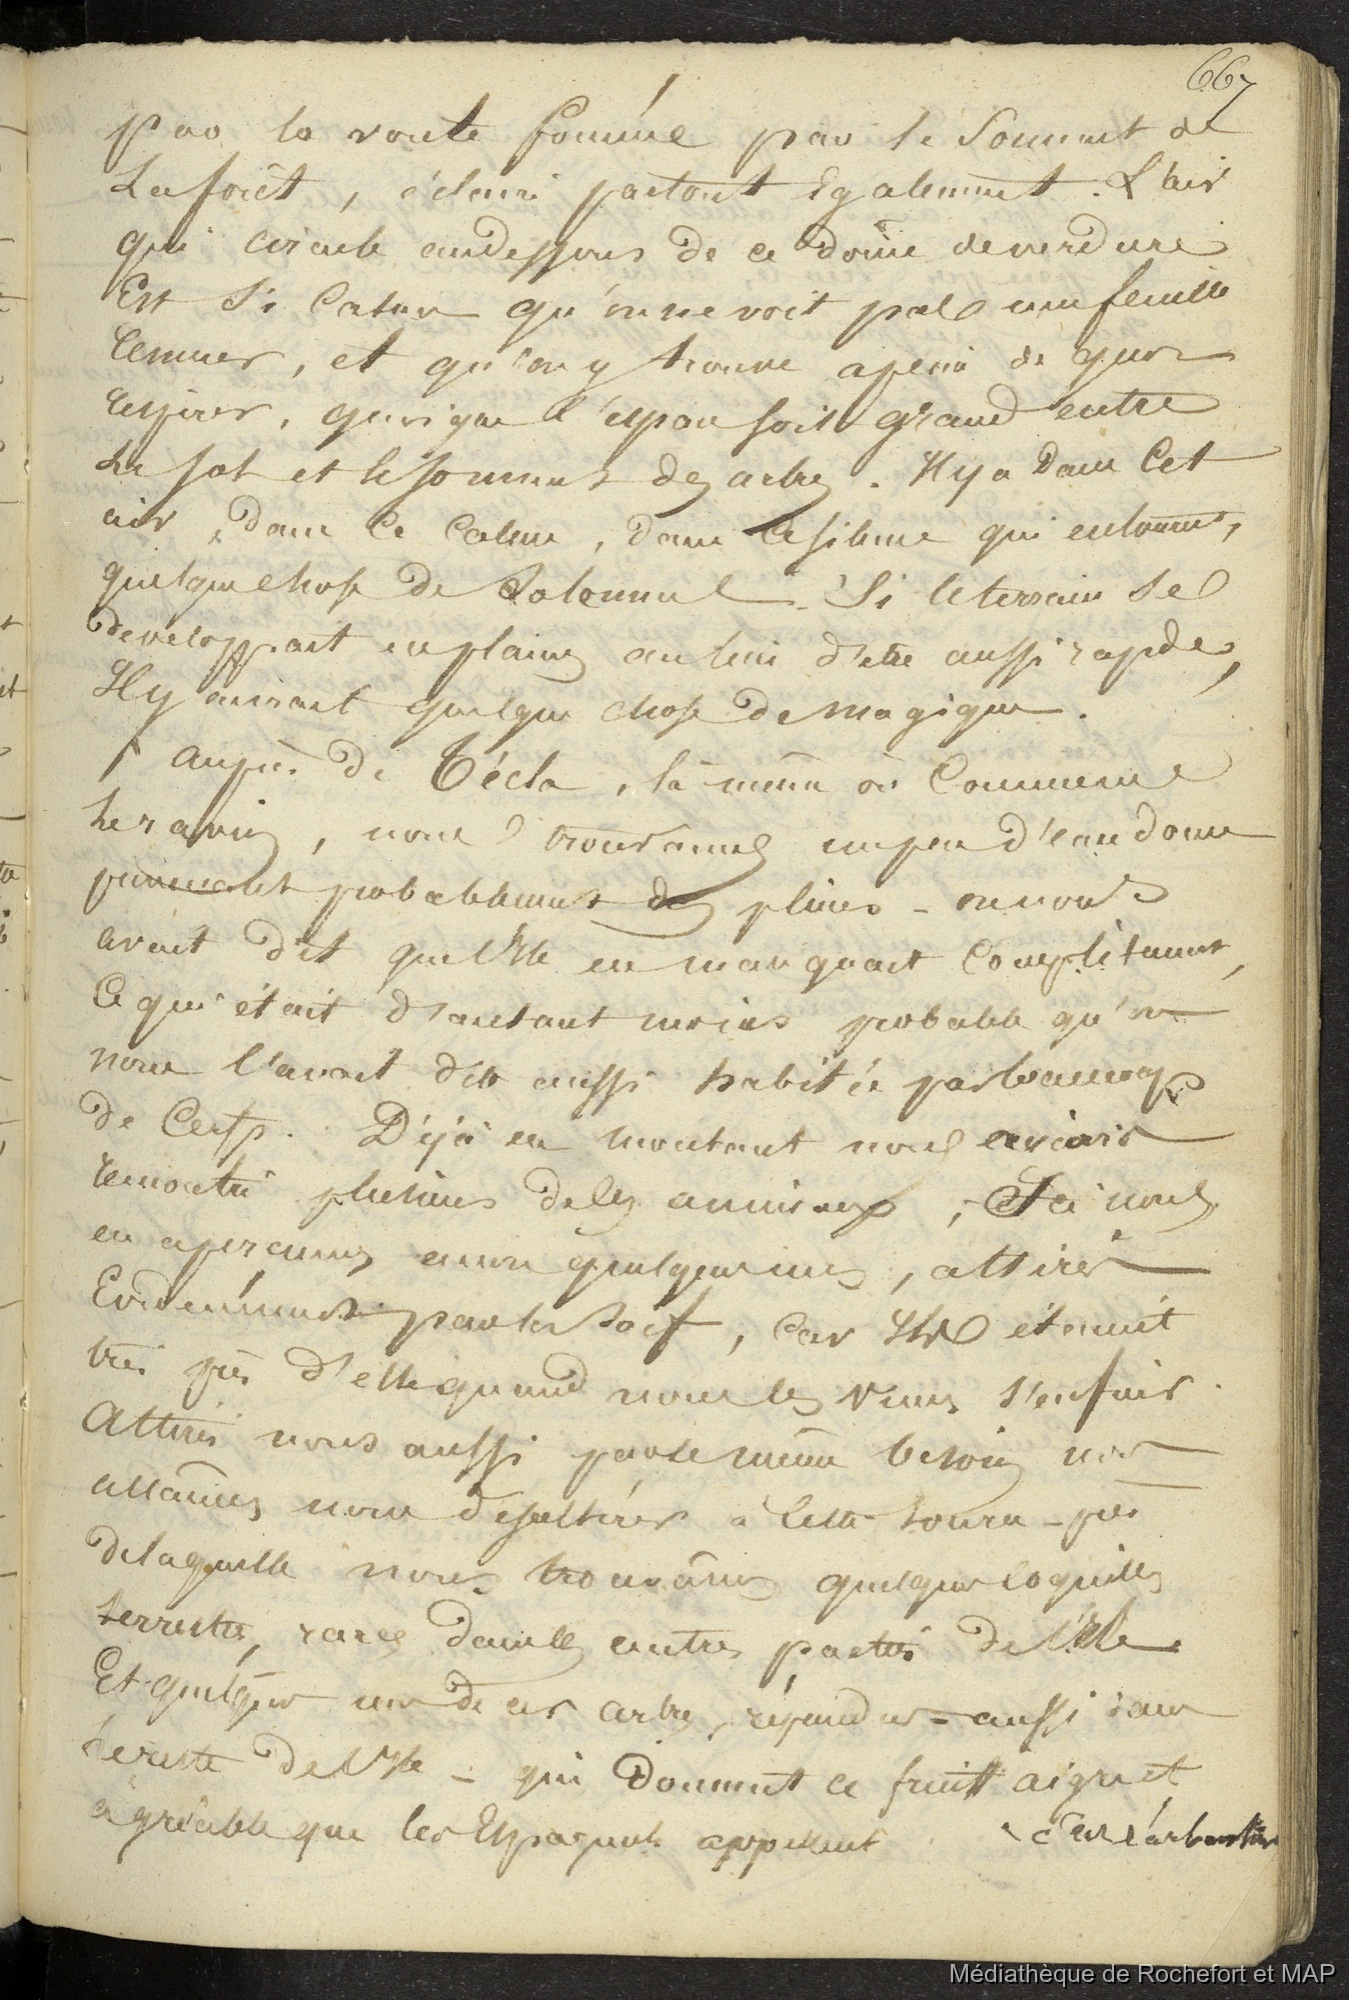 667
par la voute formée par le Sommet de
La forêt, éclairé partout Egalement. L'air
qui circule audessous de ce dôme de verdure
Est Si Calme qu'on ne voit pas une feuille
remuer, et qu'on y trouve apeine de quoi
respirer, quoique l'espace soit grand entre
Le sol et le sommet des arbres. Il y a Dans Cet
air, dans Ce Calme, dans Ce silence qui entourent,
quelque chose de Solonnel. Si le terrain Se
developpait en plaines au lieu d'etre aussi rapide,
Il y aurait quelque chose de magique.
Auprès de Técla, là même où Commence
Le ravin, nous trouvames un peu d'eau douce
provenant probablement des pluies - on nous
avait dit que l'Ile en manquait Complétement,
Ce qui était d'autant moins probable qu'on
nous l'avait dite aussi habitée par beaucoup
de Cerfs. Déjà en montant nous en avions
rencontré plusieurs de ces animaux, Ici nous
en aperçumes encore quelques uns, attirés
Evidemment par la Soif, Car Ils étaient
très près d'elle quand nous les vimes s'enfuir.
Attirés nous aussi par le même besoin nous
allames nous desaltérer à Cette Source - près
de laquelle nous trouvâmes quelques coquilles
terrestres, rares dans les autres parties de l'ile
Et quelques uns de ces arbres, répandus - aussi dans
le reste de l'Ile - qui Donnent ce fruit aigre et
agréable que les Espagnols appellent c'est l'arbousier